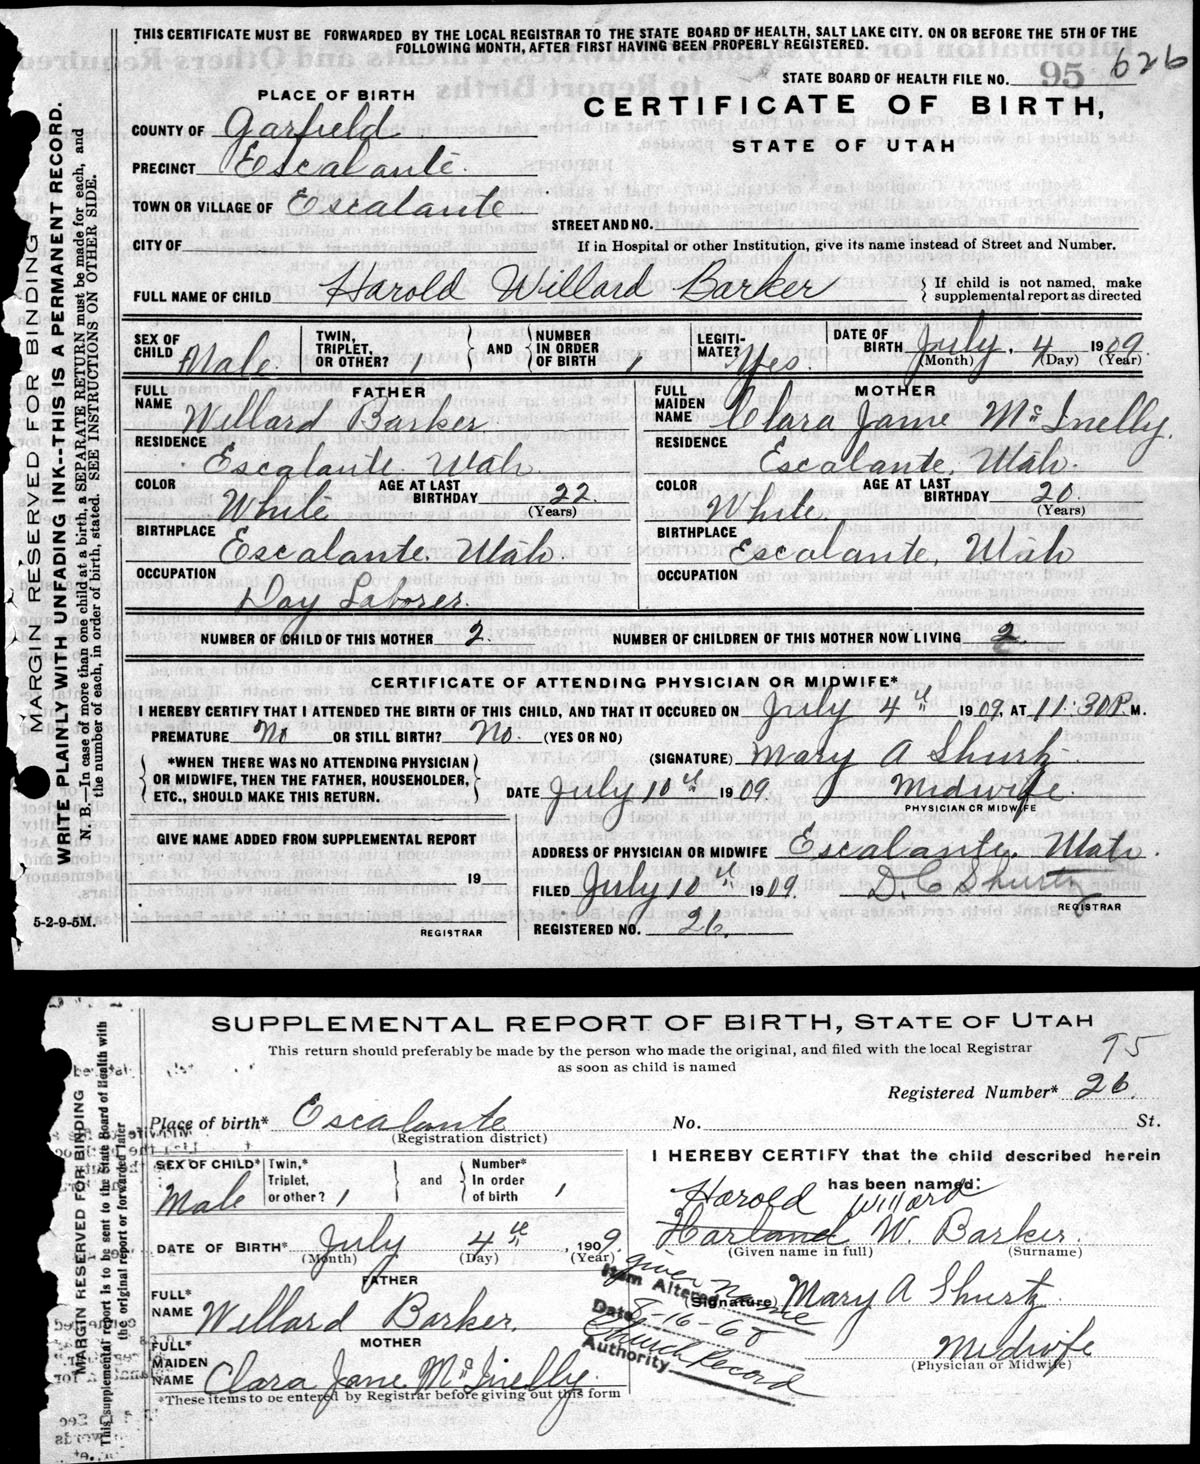 THIS CERTIFICATE MUST BE FORWARDED BY THE LOCAL REGISTRAR TO THE STATE BOARD OF HEALTH, SALT LAKE CITY. ON OR BEFORE THE 5TH OF THE
FOLLOWING MONTH, AFTER FIRST HAVING BEEN PROPERLY REGISTERED.
STATE BOARD OF HEALTH FILE NO. 95 626
PLACE OF BIRTH
CERTIFICATE OF BIRTH,
STATE OF UTAH
COUNTY OF Garfield
PRECINCT Escalante.
TOWN OR VILLAGE OF Escalante
STREET AND NO.
CITY OF
If in Hospital or other Institution, give its name instead of Street and Number.
FULL NAME OF CHILD Harold Willard Barker
If child is not named, make
supplemental report as directed
SEX OF CHILD Male. TWIN, TRIPLET, OR OTHER? 1 AND NUMBER IN ORDER OF BIRTH 1 LEGITIMATE? Yes. DATE OF BIRTH July, 4 1909.
(Month) (Day) (Year)
FATHER
FULL NAME Willard Barker
RESIDENCE Escalante. Utah.
COLOR White AGE AT LAST BIRTHDAY 22. (Years)
BIRTHPLACE Escalante. Utah.
OCCUPATION Day Laborer.
MOTHER
FULL MAIDEN NAME Clara Jane McInelly.
RESIDENCE Escalante, Utah.
COLOR White. AGE AT LAST BIRTHDAY 20. (Years)
BIRTHPLACE Escalante, Utah
OCCUPATION
NUMBER OF CHILD OF THIS MOTHER 2. NUMBER OF CHILDREN OF THIS MOTHER NOW LIVING 2
CERTIFICATE OF ATTENDING PHYSICIAN OR MIDWIFE*
I HEREBY CERTIFY THAT I ATTENDED THE BIRTH OF THIS CHILD, AND THAT IT OCCURED ON July 4th 1909, AT 11:30 P. M.
PREMATURE No OR STILL BIRTH? No. (YES OR NO)
(SIGNATURE) Mary A Shurtz
*WHEN THERE WAS NO ATTENDING PHYSICIAN
OR MIDWIFE, THEN THE FATHER, HOUSEHOLDER,
ETC., SHOULD MAKE THIS RETURN.
DATE July 10th 1909 Midwife
PHYSICIAN OR MIDWIFE
GIVE NAME ADDED FROM SUPPLEMENTAL REPORT
19
REGISTRAR
ADDRESS OF PHYSICIAN OR MIDWIFE Escalante. Utah.
FILED July 10th 1909. D. C Shurtz
REGISTRAR
REGISTERED NO. 26.
5-2-9-5M.
MARGIN RESERVED FOR BINDING
WRITE PLAINLY WITH UNFADING INK--THIS IS A PERMANENT RECORD.
N. B.—In case of more than one child at a birth, a SEPARATE RETURN must be made for each, and
the number of each, in order of birth, stated. SEE INSTRUCTIONS ON OTHER SIDE.
SUPPLEMENTAL REPORT OF BIRTH, STATE OF UTAH
This return should preferably be made by the person who made the original, and filed with the local Registrar
as soon as child is named
95
Registered Number* 26.
Place of birth* Escalante No. St.
(Registration district)
SEX OF CHILD* Male Twin,* Triplet, or other? 1 and Number* In order of birth 1
DATE OF BIRTH* July 4th, 1909.
(Month) (Day) (Year)
FATHER
FULL* NAME Willard Barker.
MOTHER
FULL* MAIDEN NAME Clara Jane McInelly.
*These items to be entered by Registrar before giving out this form
I HEREBY CERTIFY that the child described herein
has been named:
Harold Willard
Harland W. Barker.
(Given name in full) (Surname)
(Signature) Mary A Shurtz
Midwife
(Physician or Midwife)
Item Altered given name
Date 8-16-68
Authority Church Record
MARGIN RESERVED FOR BINDING
This supplemental report is to be sent to the State Board of Health with
the original report or forwarded later